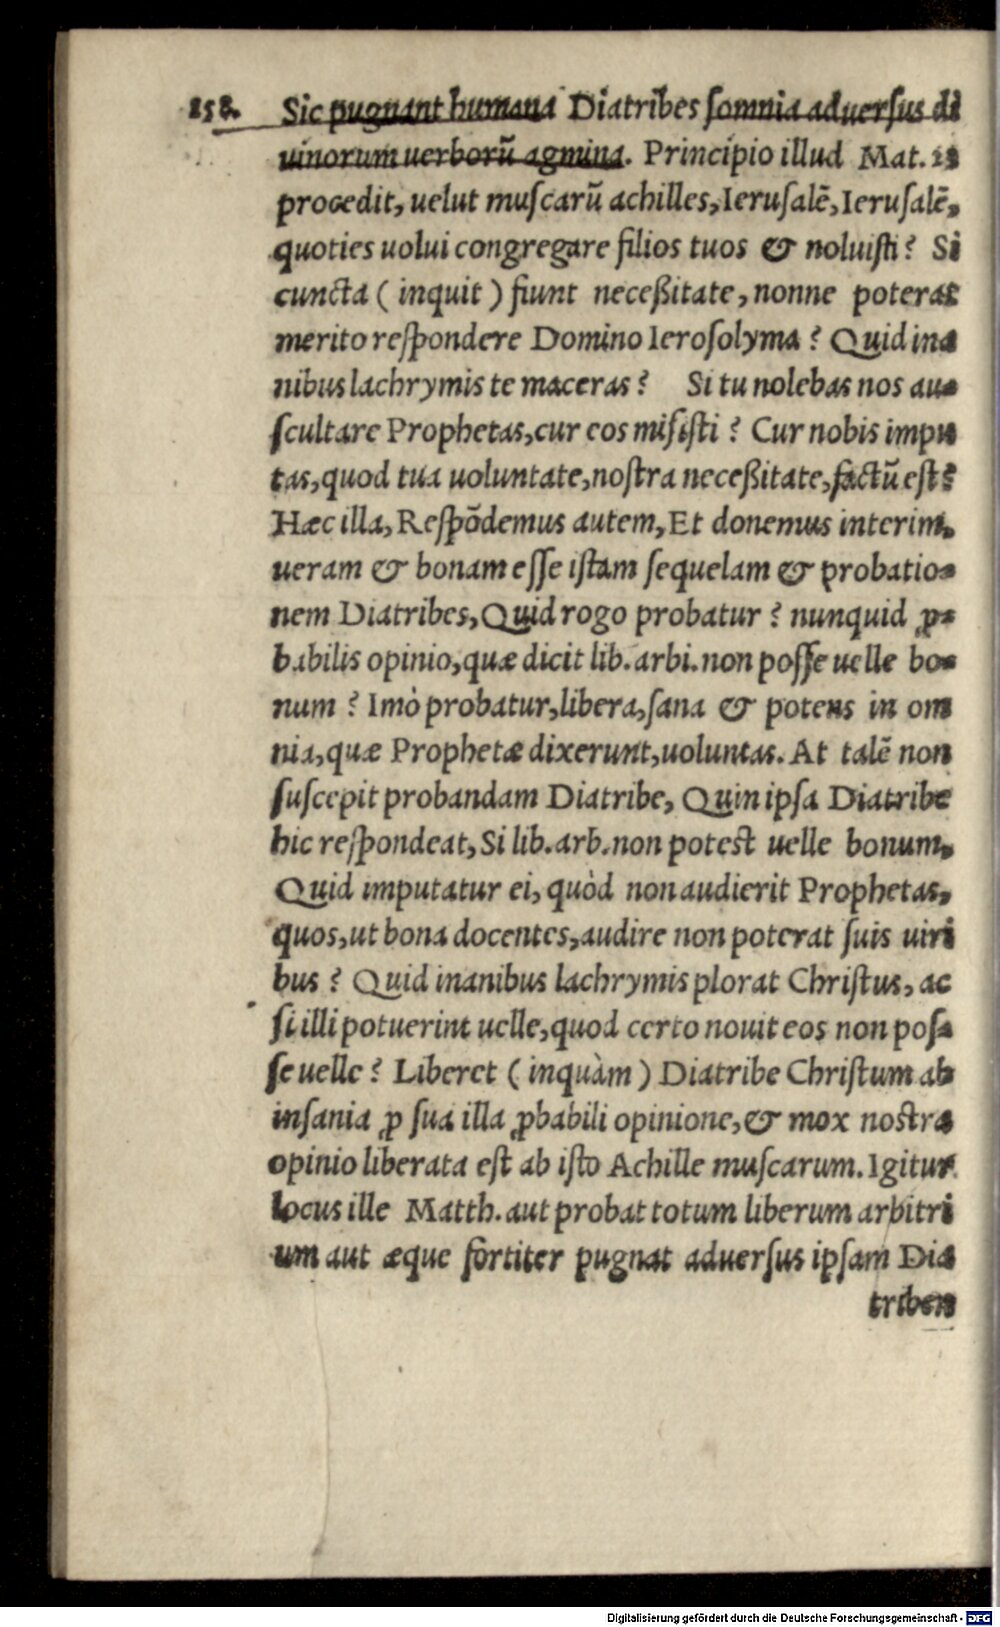 158. Sic pugnant humana Diatribes somnia aduersus di
uinorum uerborũ agmina. Principio illud Mat. 23
procedit, uelut muscarũ achilles, Ierusalẽ, Ierusalẽ,
quoties uolui congregare filios tuos & noluisti? Si
cuncta (inquit) fiunt neceßitate, nonne poterat
merito respondere Domino Ierosolyma? Quid ina
nibus lachrymis te maceras? Si tu nolebas nos au-
scultare Prophetas, cur eos misisti? Cur nobis impu
tas, quod tua uoluntate, nostra neceßitate, factũ est?
Hæc illa, Respõdemus autem, Et donemus interim,
ueram & bonam esse istam sequelam & probatio-
nem Diatribes, Quid rogo probatur? nunquid ꝓ-
babilis opinio, quæ dicit lib. arbi. non posse uelle bo-
num? Imò probatur, libera, sana & potens in om
nia, quæ Prophetæ dixerunt, uoluntas. At talẽ non
suscepit probandam Diatribe, Quin ipsa Diatribe
hic respondeat, Si lib. arb. non potest uelle bonum,
Quid imputatur ei, quòd non audierit Prophetas,
quos, ut bona docentes, audire non poterat suis uiri
bus? Quid inanibus lachrymis plorat Christus, ac
si illi potuerint uelle, quod certo nouit eos non pos-
se uelle? Liberet (inquàm) Diatribe Christum ab
insania ꝓ sua illa ꝓbabili opinione, & mox nostra
opinio liberata est ab isto Achille muscarum. Igitur
locus ille Matth. aut probat totum liberum arbitri
um aut æque fortiter pugnat aduersus ipsam Dia
triben
Digitalisierung gefördert durch die Deutsche Forschungsgemeinschaft - DFG